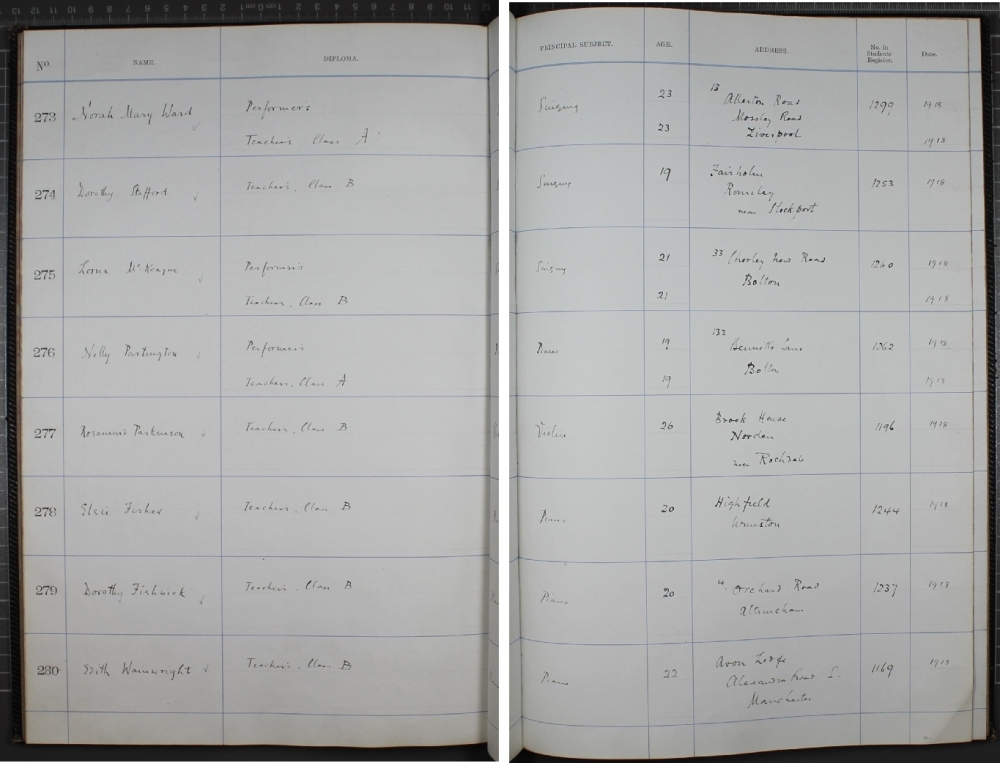 No NAME. DIPLOMA.
273 Norah Mary Ward Performers
Teachers. Class A
274 Dorothy Stafford Teachers. Class B
275 Lorna McKeague Performers
Teachers. Class B
276 Nelly Partington Performers
Teachers. Class A
277 Rosamund Parkinson Teachers. Class B
278 Elsie Fisher Teachers. Class B
279 Dorothy Fishwick Teachers. Class B
280 Edith Wainwright Teachers. Class B
PRINCIPAL SUBJECT. AGE. ADDRESS. No. in Students' Register. Date.
Singing 23 13 Allerton Road 1299 1918
Mossley Road
23 Liverpool 1918
Singing 19 Fairholm 1253 1918
Romiley
near Stockport
Singing 21 33 Chorley New Road 1260 1918
Bolton
21 1918
Piano 19 132 Bennetts Lane 1262 1918
Bolton
19 1918
Violin 26 Brook House 1196 1918
Norden
near Rochdale
Piano 20 Highfield 1244 1918
Urmston
Piano 20 4 Orchard Road 1237 1918
Altrincham
Piano 22 Avon Lodge 1169 1918
Alexandra Road S.
Manchester